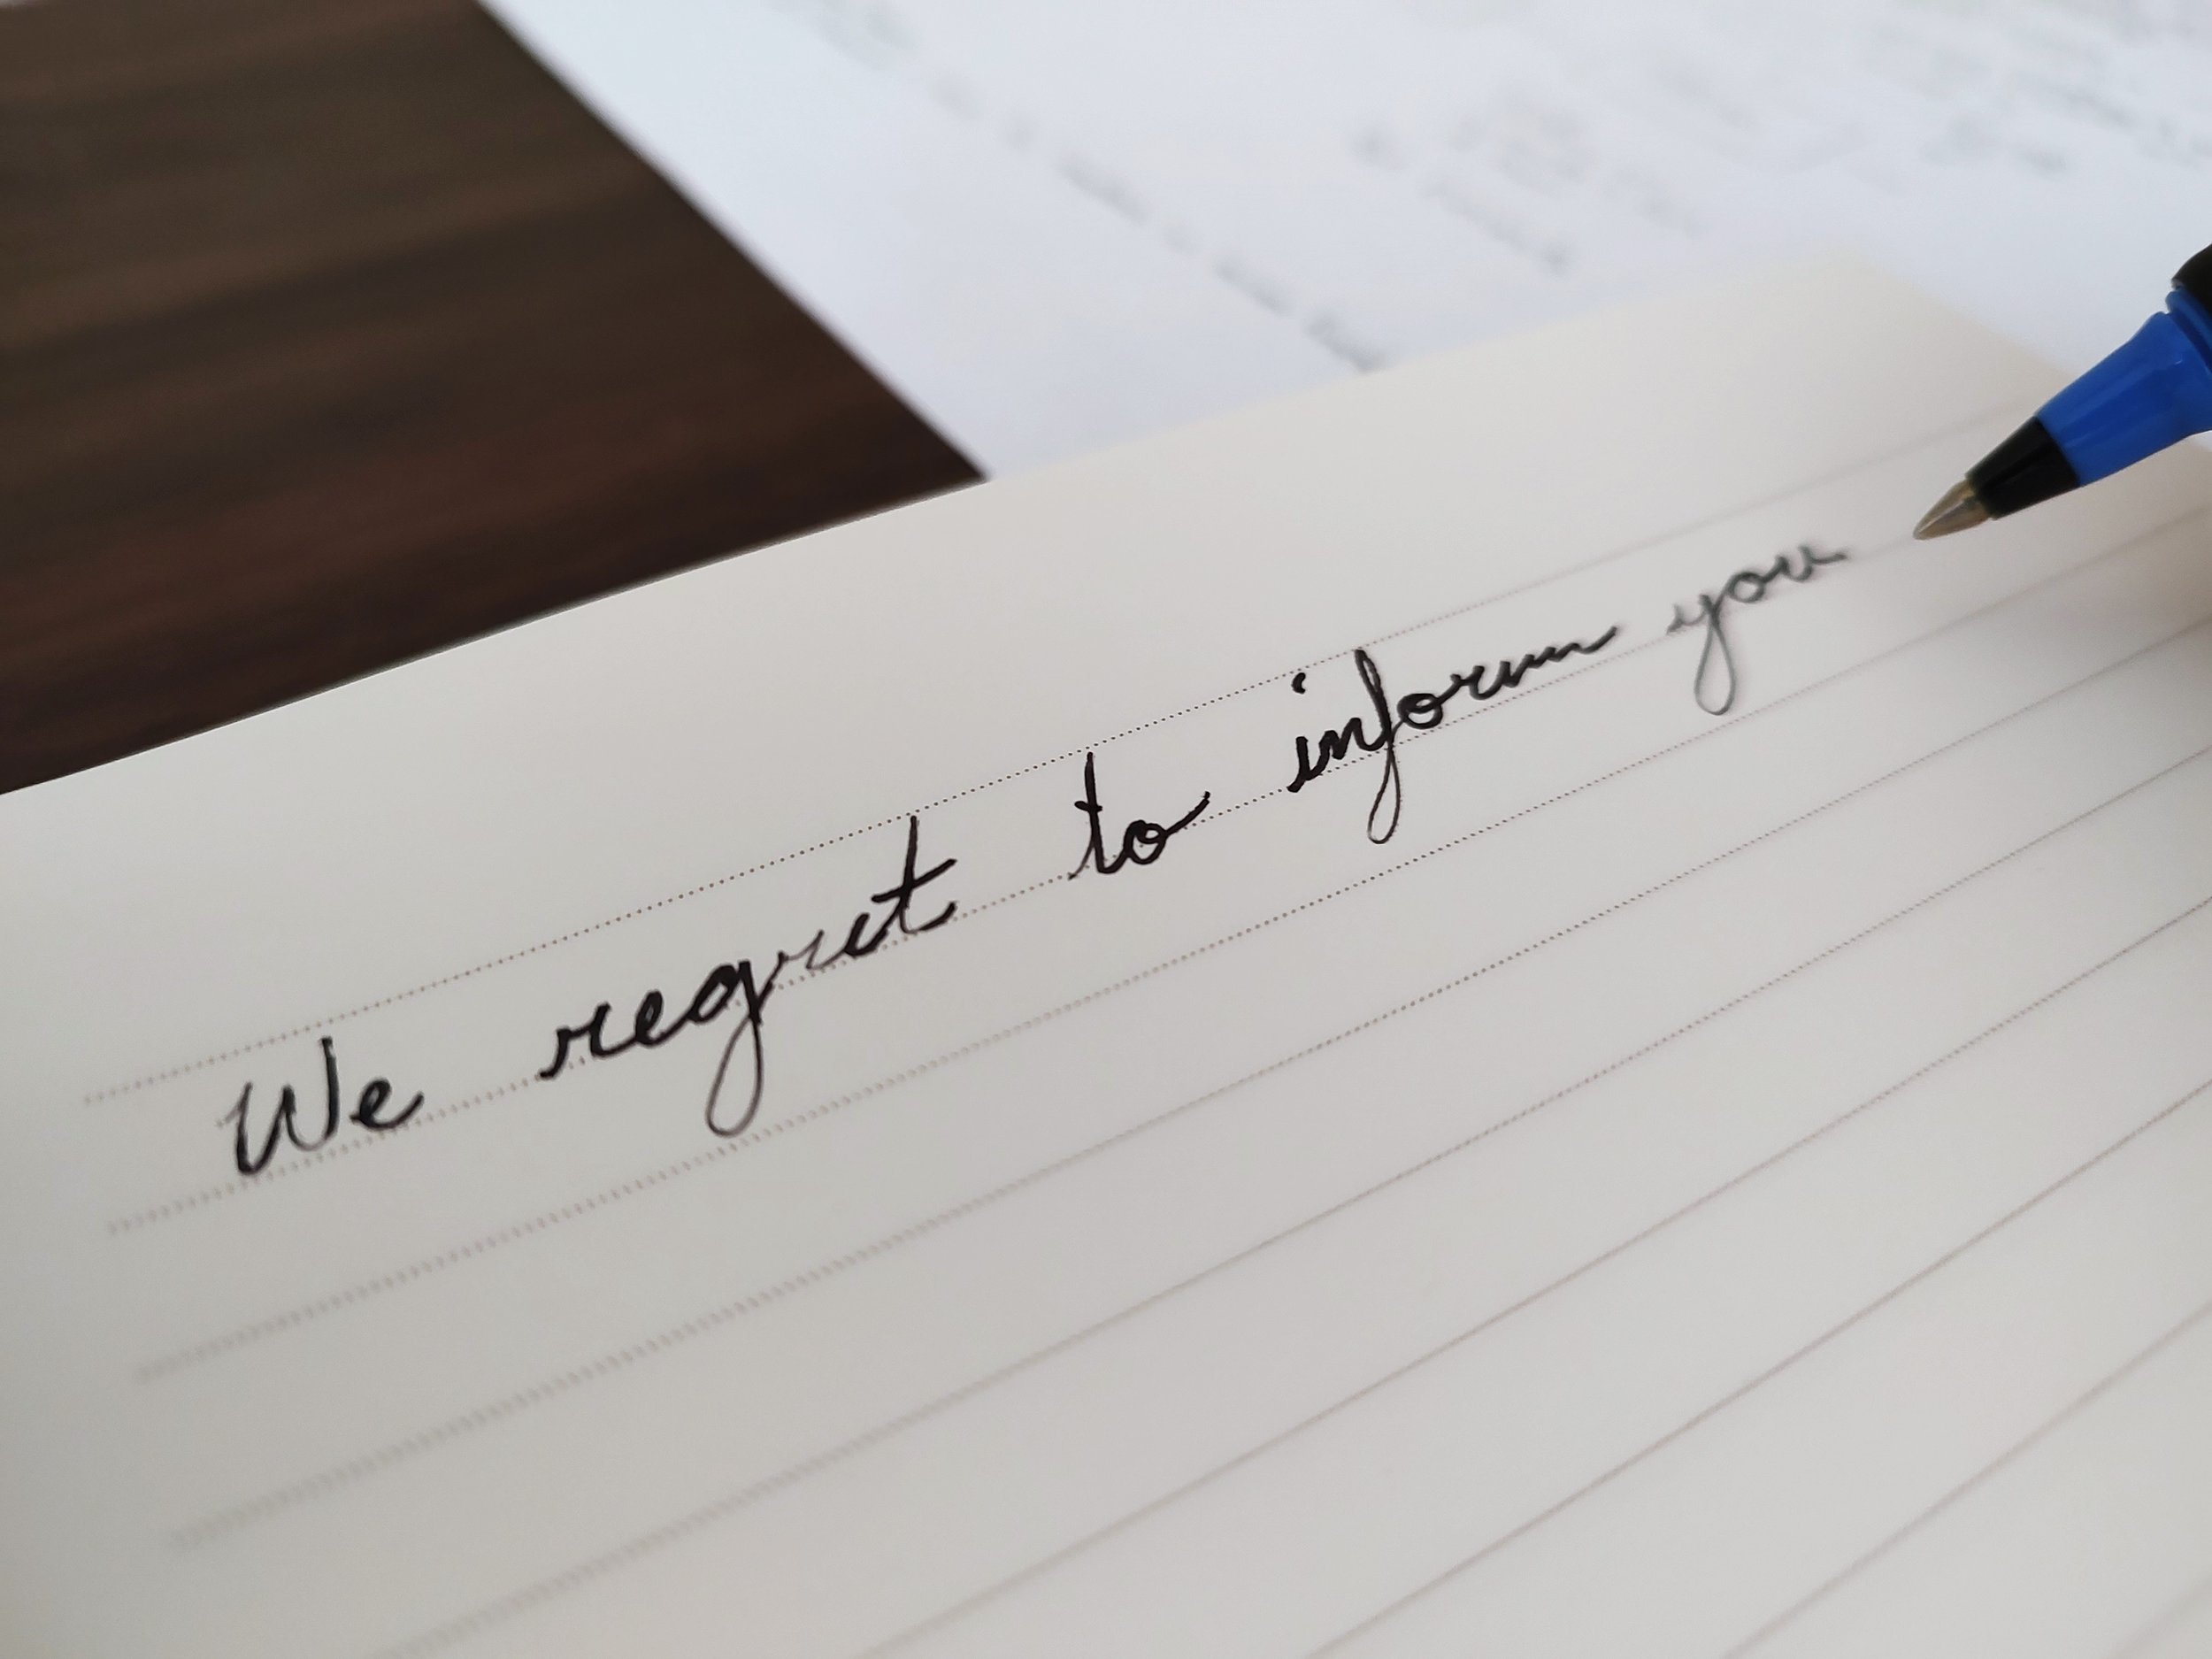 We regret to inform you